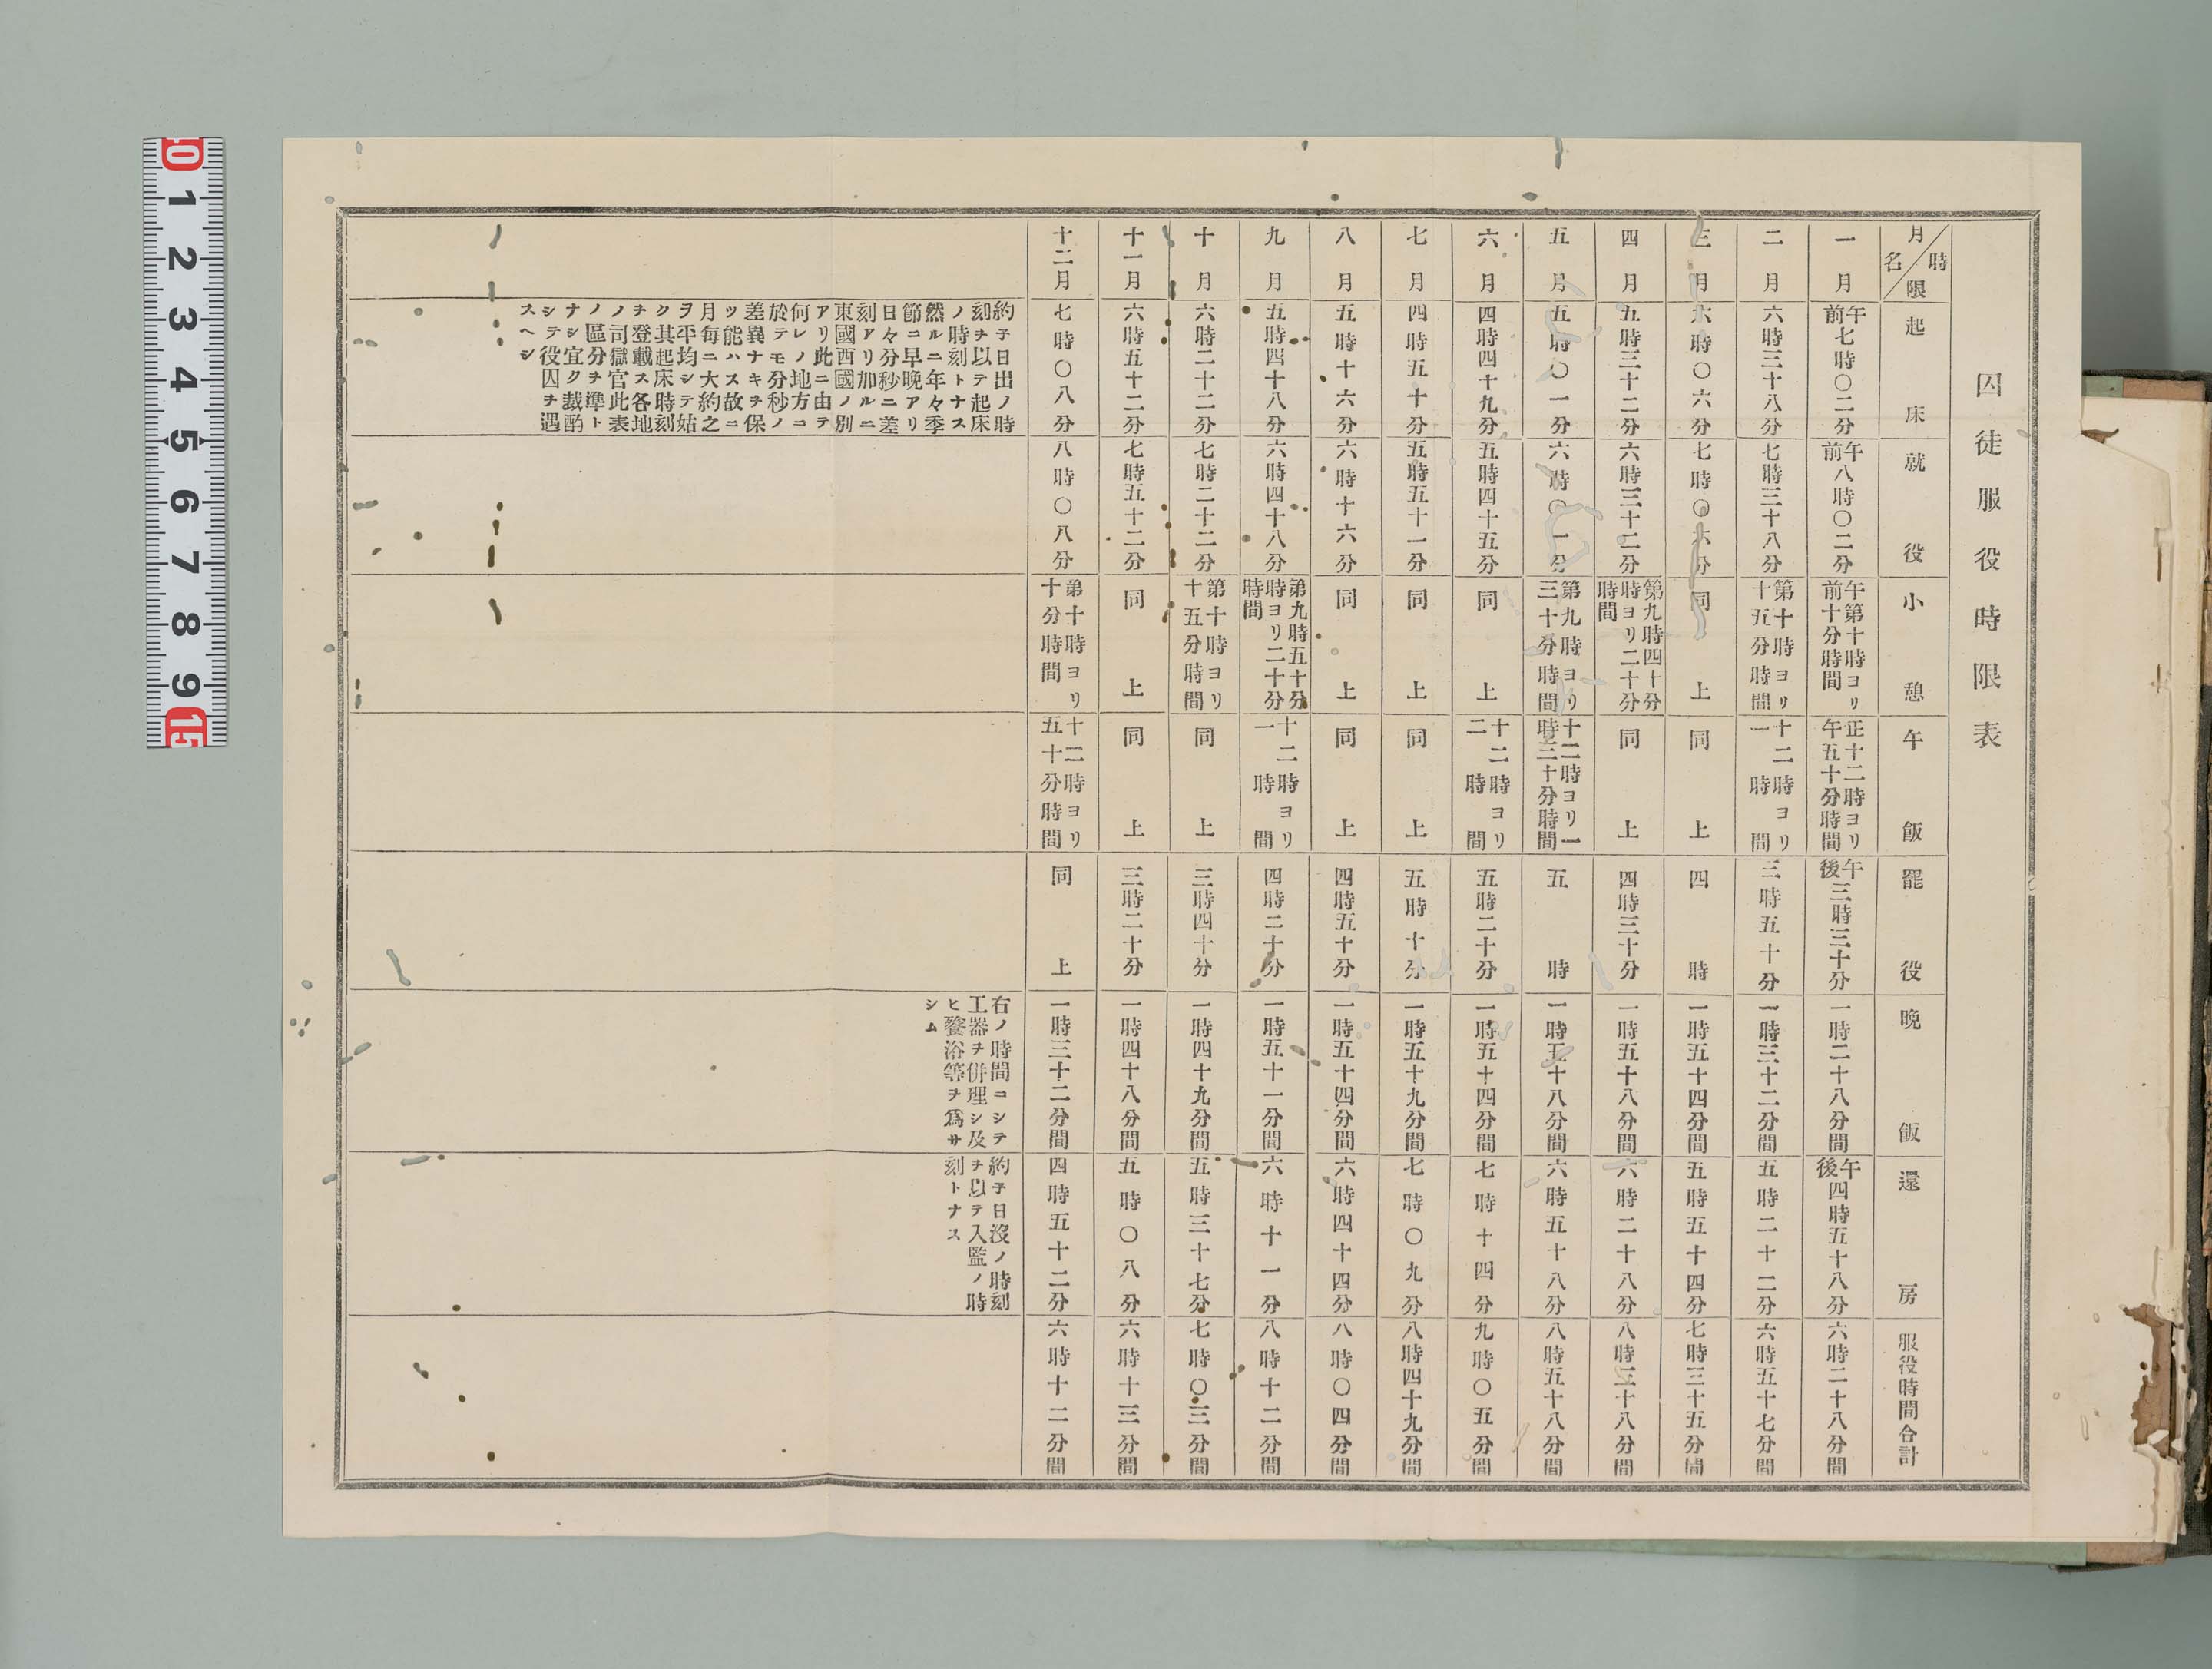 囚徒服役時限表
時限 月名
起床
就役
小憩
午飯
罷役
晩飯
還房
服役時間合計
一月
午前七時〇二分
午前八時〇二分
午前第十時ヨリ十分時間
正午十二時ヨリ五十分時間
午後三時三十分
一時二十八分間
午後四時五十八分
六時二十八分間
二月
六時三十八分
七時三十八分
第十時ヨリ十五分時間
十二時ヨリ一時間
三時五十分
一時三十二分間
五時二十二分
六時五十七分間
三月
六時〇六分
七時〇六分
同上
同上
四時
一時五十四分間
五時五十四分
七時三十五分間
四月
五時三十二分
六時三十二分
第九時四十分時ヨリ二十分時間
同上
四時三十分
一時五十八分間
六時二十八分
八時三十八分間
五月
五時〇一分
六時〇一分
第九時ヨリ三十分時間
十二時ヨリ一時三十分時間
五時
一時五十八分間
六時五十八分
八時五十八分間
六月
四時四十九分
五時四十五分
同上
十二時ヨリ二時間
五時二十分
一時五十四分間
七時十四分
九時〇五分間
七月
四時五十分
五時五十一分
同上
同上
五時十分
一時五十九分間
七時〇九分
八時四十九分間
八月
五時十六分
六時十六分
同上
同上
四時五十分
一時五十四分間
六時四十四分
八時〇四分間
九月
五時四十八分
六時四十八分
第九時五十分時ヨリ二十分時間
十二時ヨリ一時間
四時二十分
一時五十一分間
六時十一分
八時十二分間
十月
六時二十二分
七時二十二分
第十時ヨリ十五分時間
同上
三時四十分
一時四十九分間
五時三十七分
七時〇三分間
十一月
六時五十二分
七時五十二分
同上
同上
三時二十分
一時四十八分間
五時〇八分
六時十三分間
十二月
七時〇八分
八時〇八分
第十時ヨリ十分時間
十二時ヨリ五十分時間
同上
一時三十二分間
四時五十二分
六時十二分間
約子日出ノ時
刻チ以テ起床
ノ時刻トナス
然ルニ年々季
節ニ早晩アリ
日々分秒ニ差
刻アリ加ルニ
東國西國ノ別
アリ此ニ由テ
何レノ地方ニ
於テモ分秒ノ
差異ナキチ保
ツ能ハス故ニ
月每ニ大約之
ヲ平均シテ姑
ク其起床時刻
チ登載ス各地
ノ司獄官此表
ノ區分チ準ト
ナシ宜ク裁酌
シテ役囚チ遇
スヘシ
右ノ時間ニシテ
工器チ併理シ及
ヒ餐浴等ヲ爲サ
シム
約子日沒ノ時刻
チ以テ入監ノ時
刻トナス
0
1
2
3
4
5
6
7
8
9